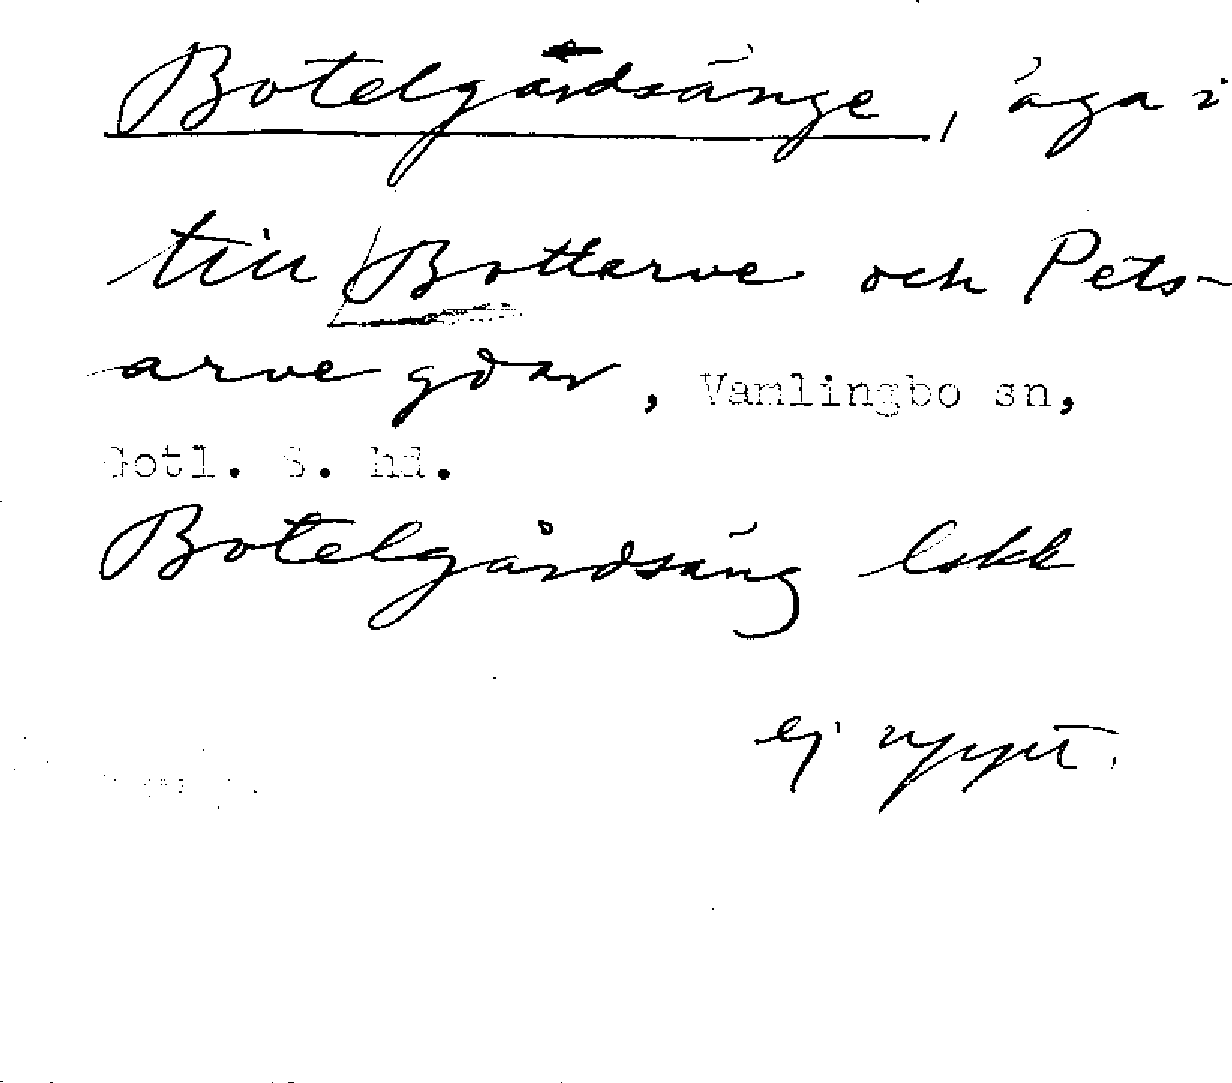 Botelgårdsänge, äga i
till Bottarve och Pets-
arve gdar, Vamlingbo sn,
Gotl. S. hd.
Botelgårdsäng
ej uppt.